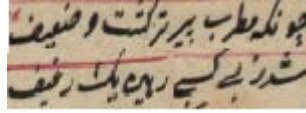 چونکه مطرب پیرتر کشت و ضعیف
شد ز بی کسبی رهین یک رغیف